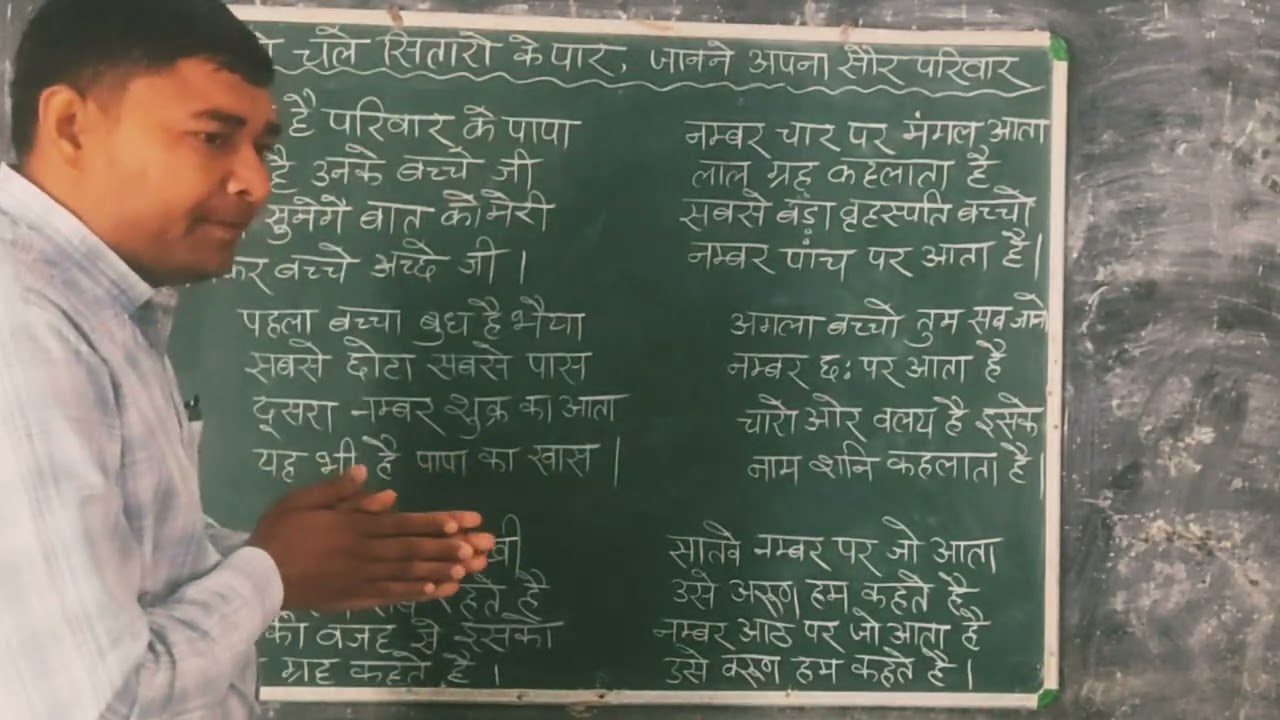 चले सितारो के पार, जानने अपना सौर परिवार
है परिवार के पापा
है उनके बच्चे जी
सुमेगे बात को मेरी
बच्चे अच्दे जी।
पहला बच्चा बुध है भैया
सबसे छोटा सबसे पास
दूसरा नम्बर शुक्र का आता
यह भी है पापा का खास।
रहते है
की वजह से इसको
ग्रह कहते है।
नम्बर चार पर मंगल आता
लाल ग्रह कहलाता है
सबसे बड़ा वृहस्पति बच्चो
नम्बर पांच पर आता है।
अगला बच्चो तुम सब जानो
नम्बर छः पर आता है
चारो ओर वलय है इसके
नाम शनि कहलाता है।
सातवे नम्बर पर जो आता
उसे अरूण हम कहते है,
नम्बर आठ पर जो आता है
उसे वरूण हम कहते है।